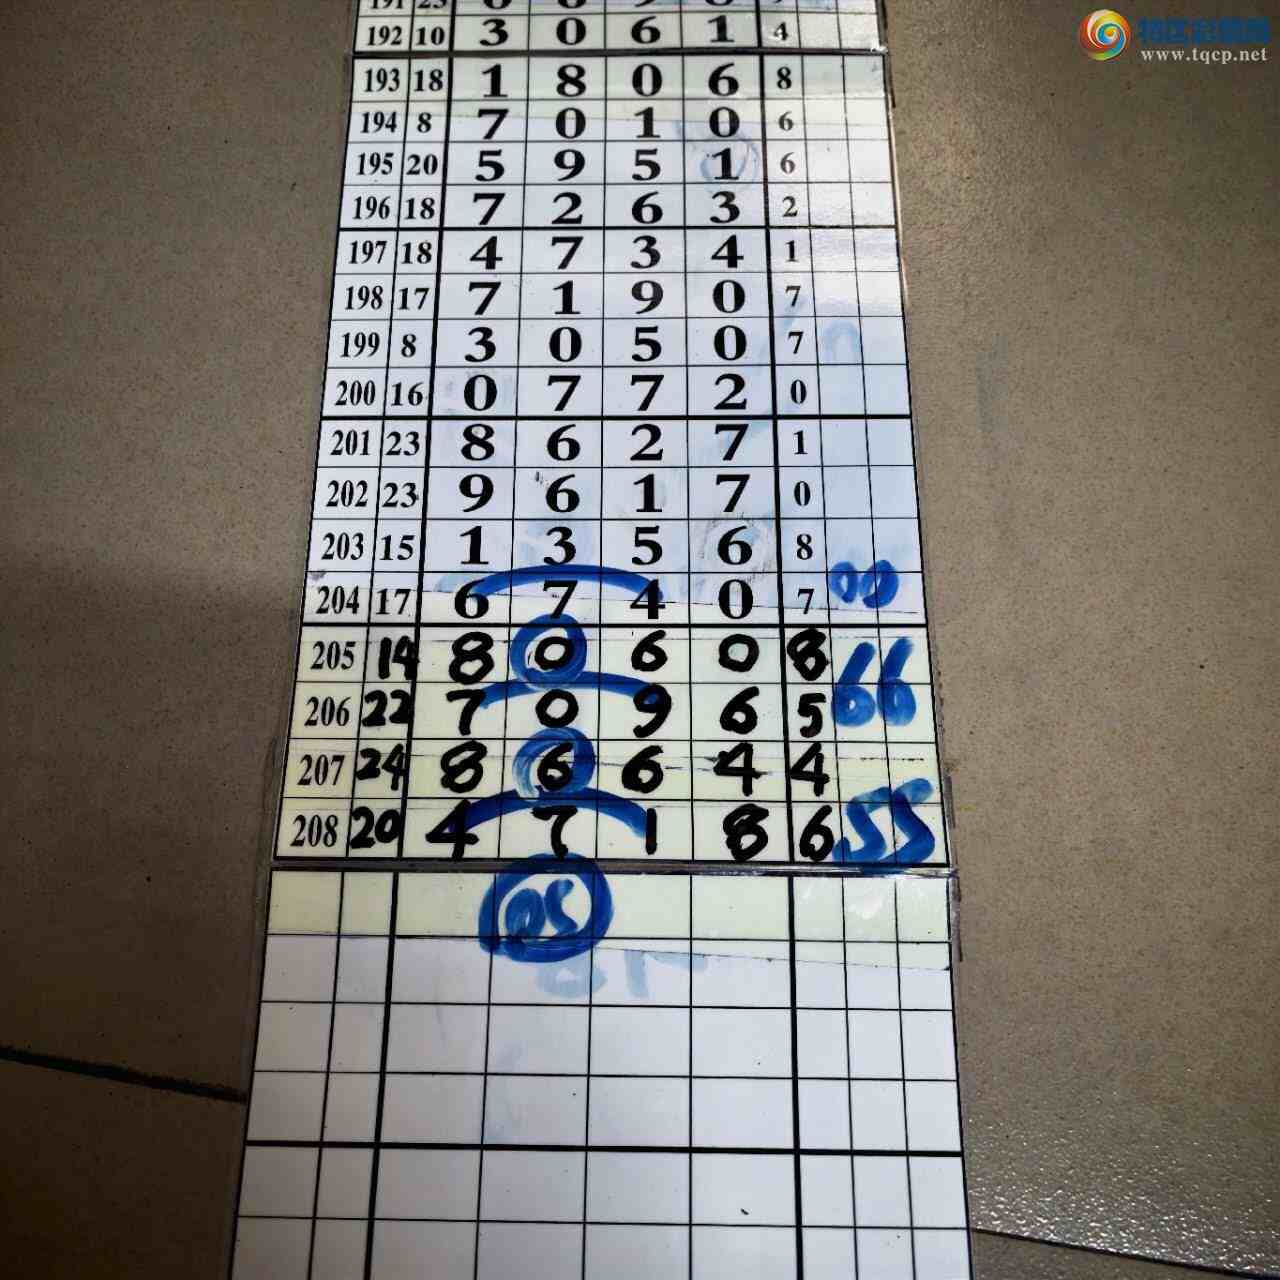 www.tqcp.net
192 10 3 0 6 1 4
193 18 1 8 0 6 8
194 8 7 0 1 0 6
195 20 5 9 5 1 6
196 18 7 2 6 3 2
197 18 4 7 3 4 1
198 17 7 1 9 0 7
199 8 3 0 5 0 7
200 16 0 7 7 2 0
201 23 8 6 2 7 1
202 23 9 6 1 7 0
203 15 1 3 5 6 8
204 17 6 7 4 0 7 00
205 14 8 0 6 0 8
206 22 7 0 9 6 5 66
207 24 8 6 6 4 4
208 20 4 7 1 8 6 55
05